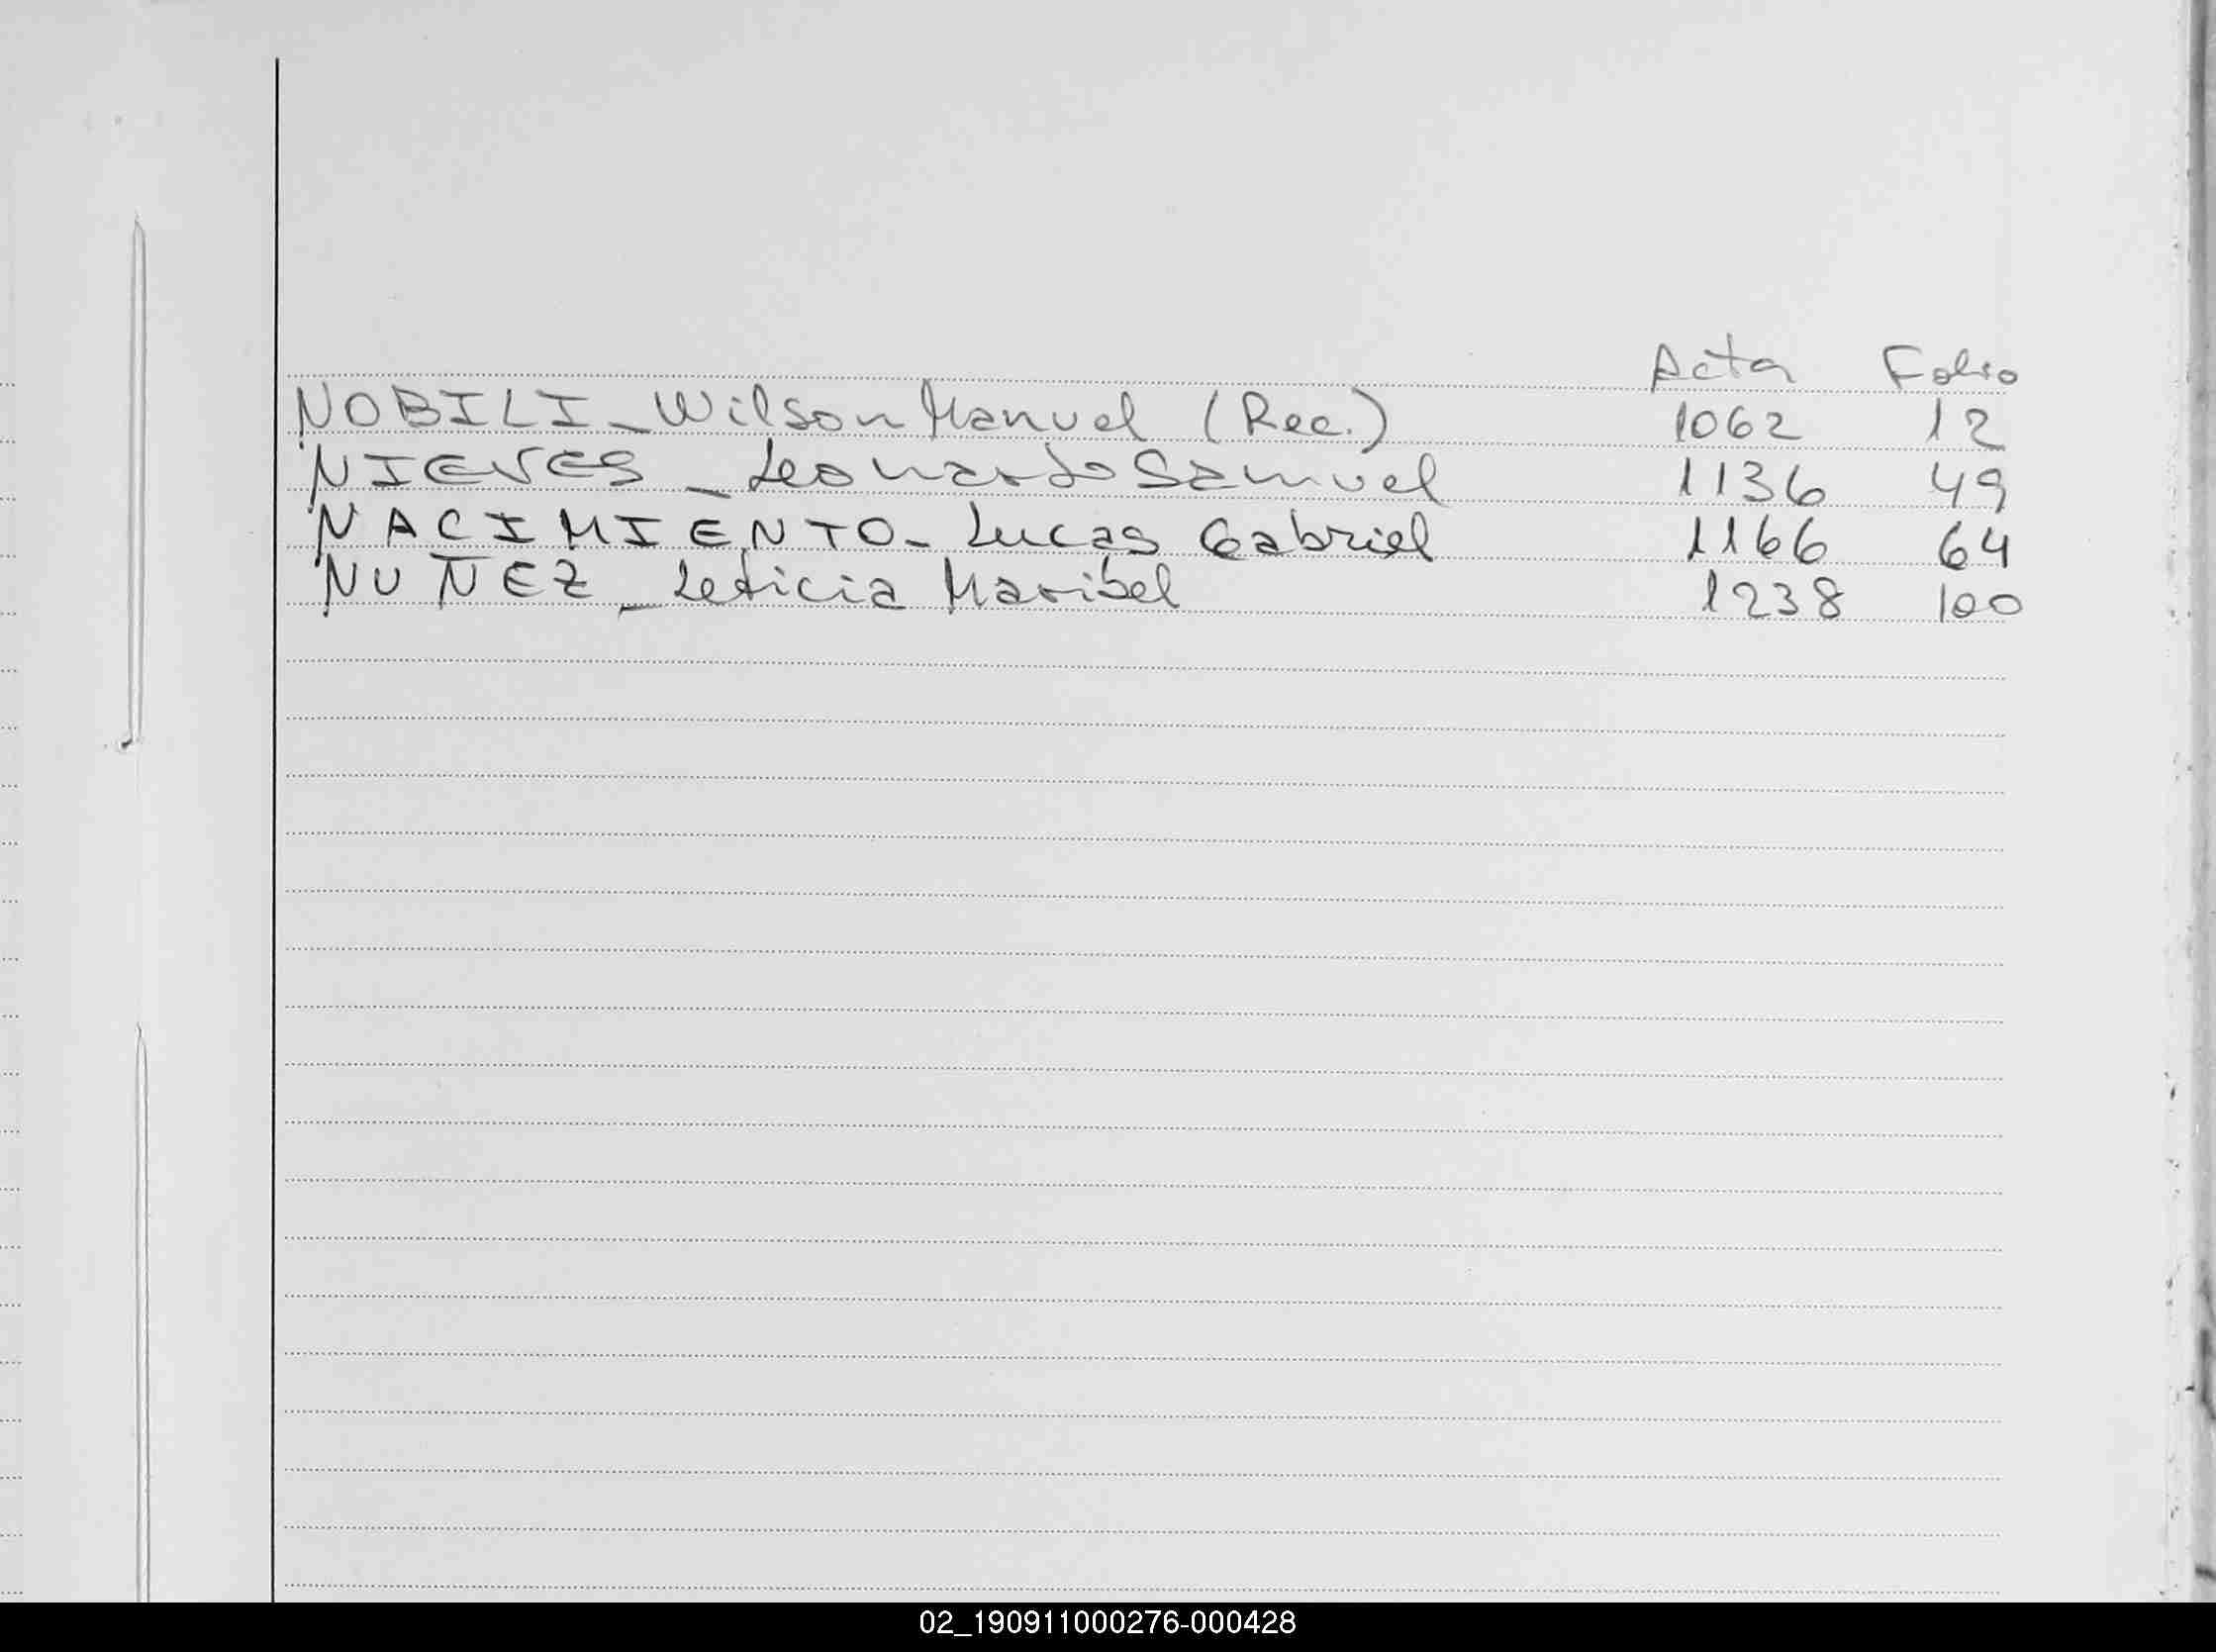 Acta Folio
NOBILI_Wilson Manuel (Rec.) 1062 12
NIEVES_Leonardo Samuel 1136 49
NACIMIENTO_Lucas Gabriel 1166 64
NUÑEZ_Leticia Maribel 1238 100
02_190911000276-000428